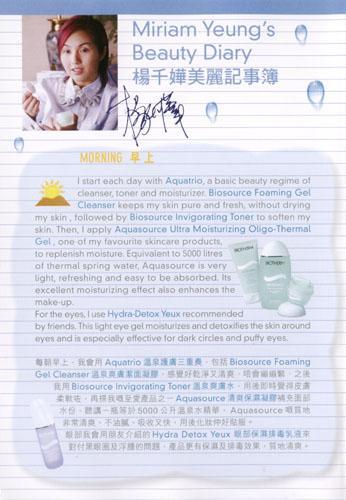 Miriam Yeung's
Beauty Diary
楊千嬅美麗記事簿
MORNING 早上
I start each day with Aquatrio, a basic beauty regime of
cleanser, toner and moisturizer. Biosource Foaming Gel
Cleanser keeps my skin pure and fresh, without drying
my skin, followed by Biosource Invigorating Toner to soften my
skin. Then, I apply Aquasource Ultra Moisturizing Oligo-Thermal
Gel, one of my favourite skincare products,
to replenish moisture. Equivalent to 5000 litres
of thermal spring water, Aquasource is very
light, refreshing and easy to be absorbed. Its
excellent moisturizing effect also enhances the
make-up.
For the eyes, I use Hydra-Detox Yeux recommended
by friends. This light eye gel moisturizes and detoxifies the skin around
eyes and is especially effective for dark circles and puffy eyes.
BIOTHERM
BIOTHERM
每朝早上，我會用 Aquatrio 溫泉護膚三重奏，包括 Biosource Foaming
Gel Cleanser 溫泉爽膚潔面凝膠，感覺好乾淨又清爽，唔會繃繃緊，之後
我用 Biosource Invigorating Toner 溫泉爽膚水，用後即時覺得皮膚
柔軟咗，再搽我嘅至愛產品之一 Aquasource 清爽保濕凝膠補充面部
水份，聽講一瓶等於 5000 公升溫泉水精華，Aquasource 嘅質地
非常清爽、不油膩、吸收又快，用後化妝仲好貼服。
眼部我會用朋友介紹的 Hydra Detox Yeux 眼部保濕排毒乳液來
對付黑眼圈及浮腫的問題，產品更有保濕及排毒效果，質地清爽。